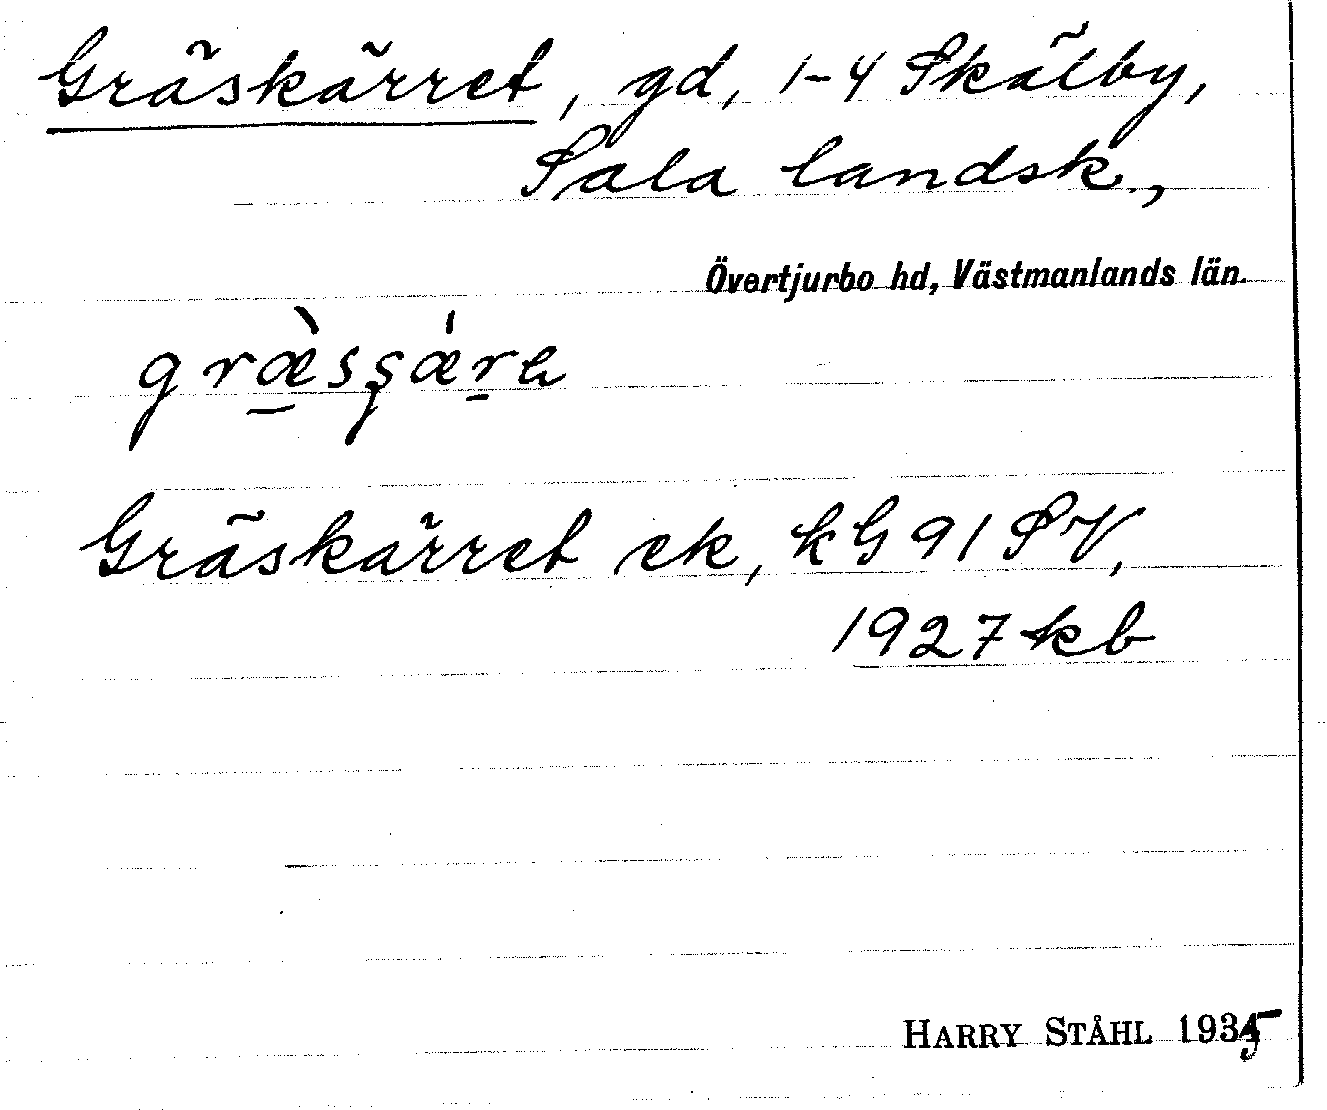 Gräskärret, gd, 1-4 Skälby,
Sala landsk.,
Övertjurbo hd, Västmanlands län.
Gräskärret ek, kG 91 SV,
1927 kb
HARRY STÅHL 1935